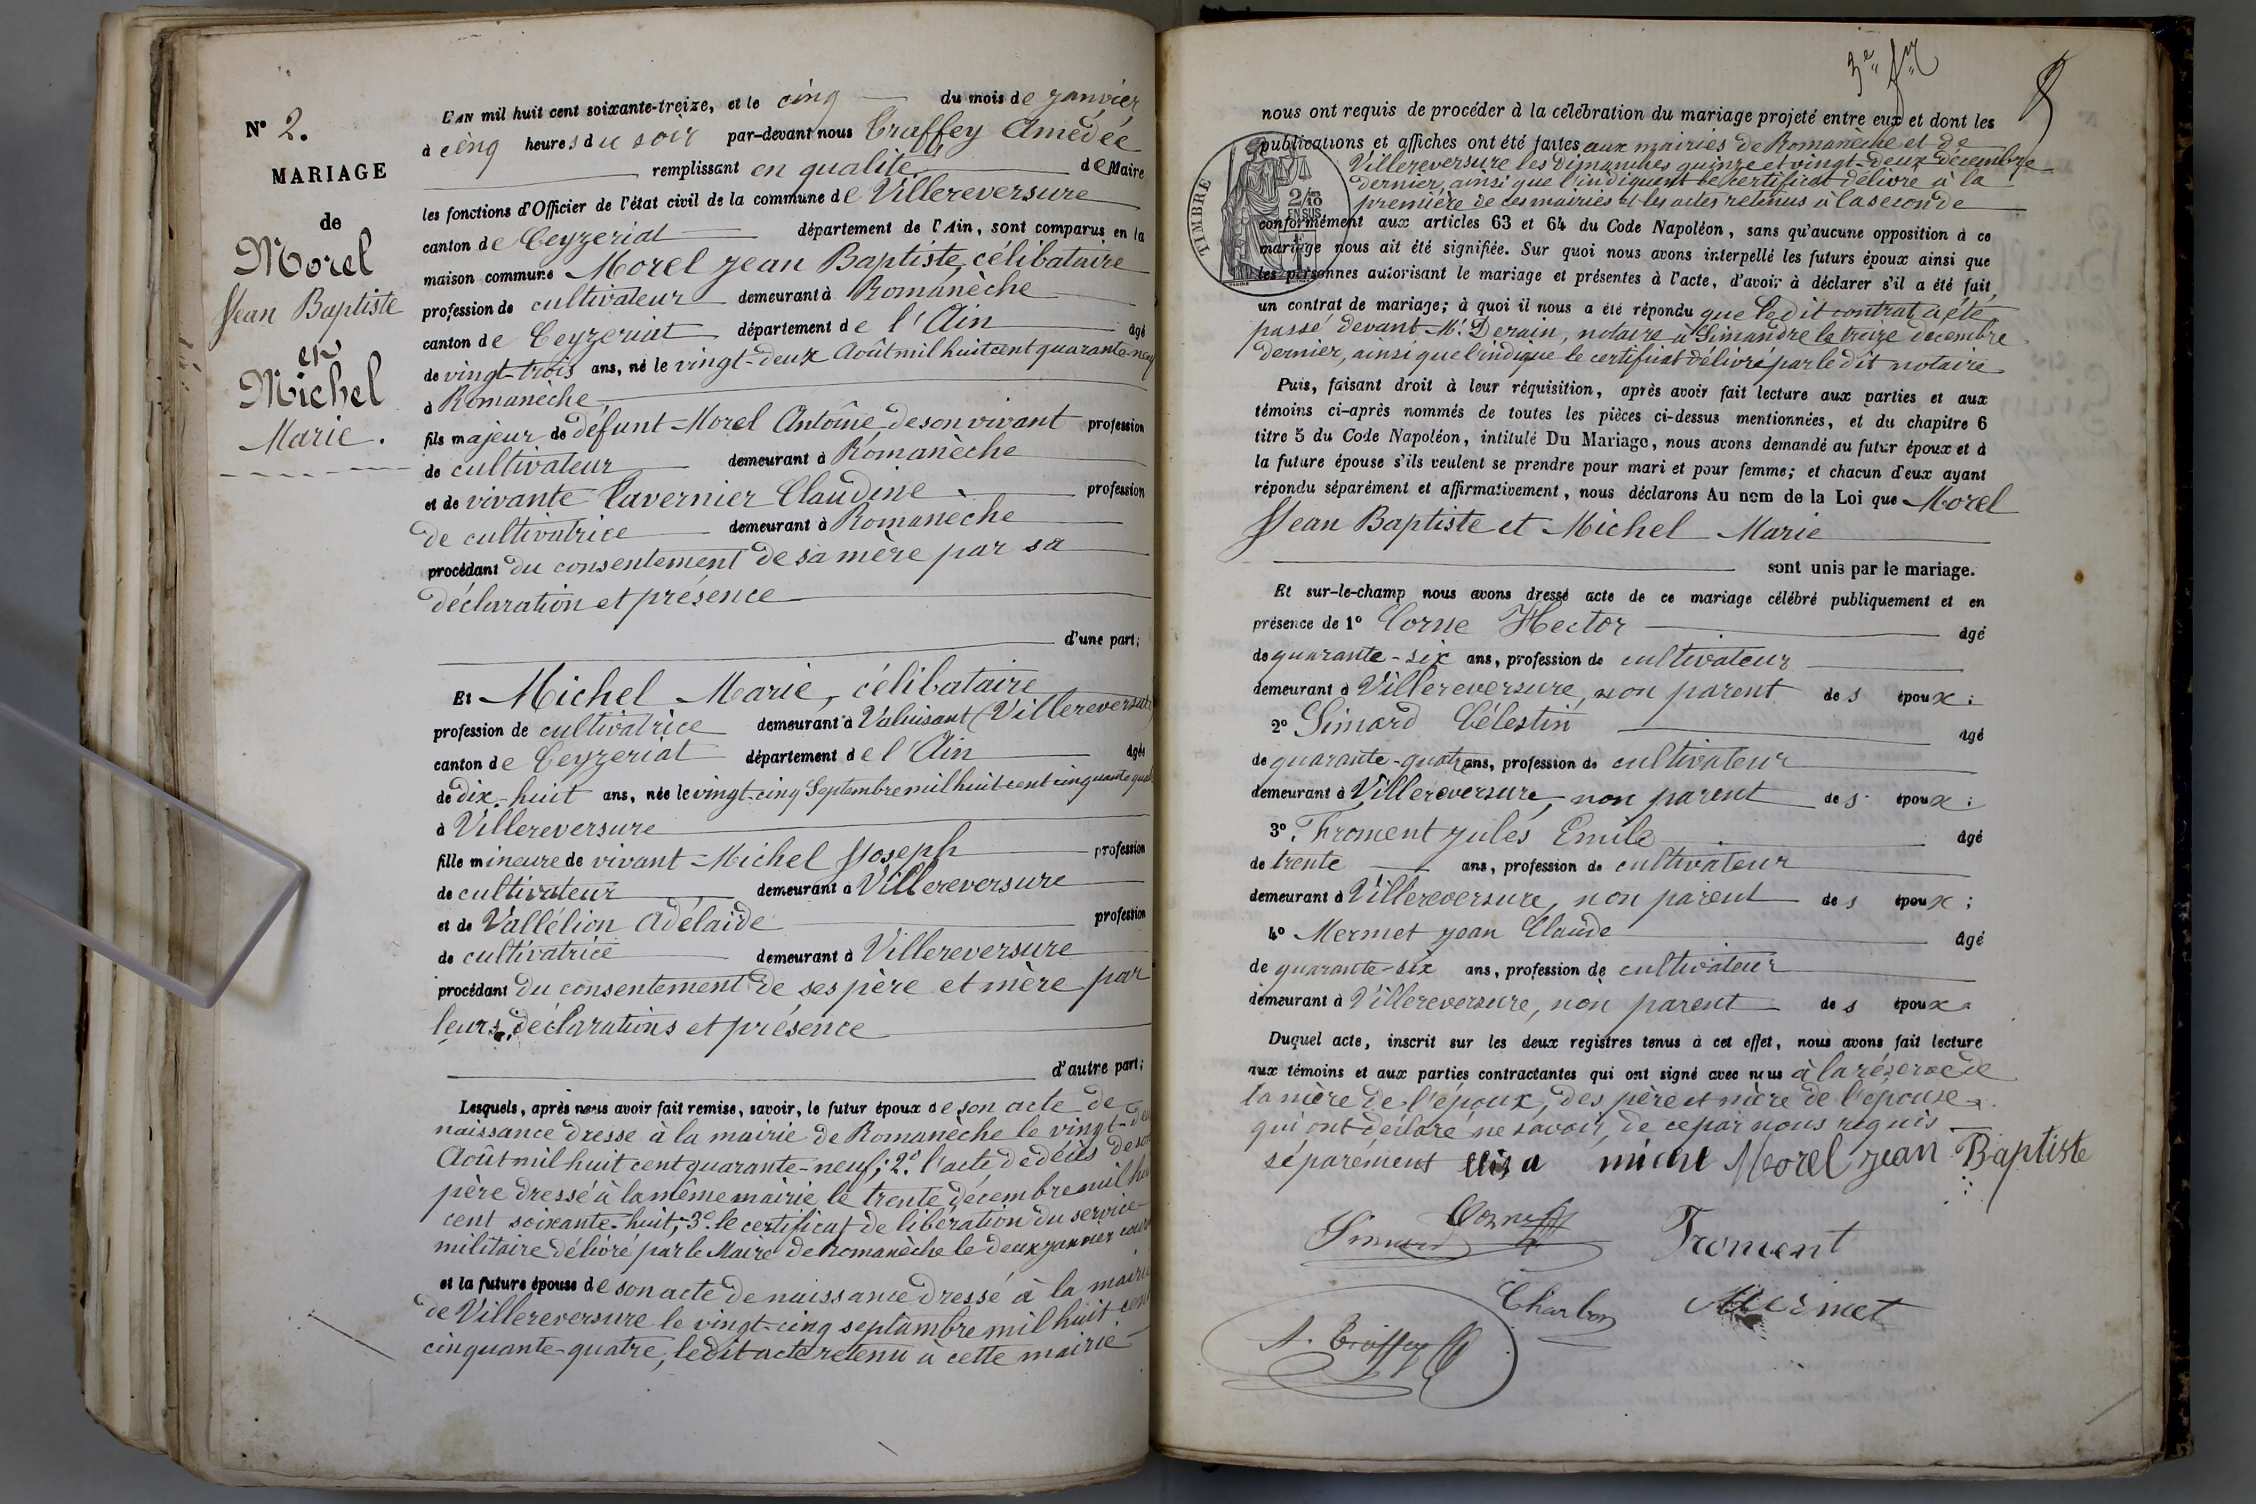 N° 2.
MARIAGE
de
Morel
Jean Baptiste
et
Michel
Marie.
L'AN mil huit cent soixante-treize, et le cinq du mois de janvier
à cinq heures du soir par-devant nous Traffey Amédée
remplissant en qualité de Maire
les fonctions d'Officier de l'état civil de la commune de Villereversure
canton de Ceyzeriat département de l'Ain, sont comparus en la
maison commune Morel Jean Baptiste, célibataire
profession de cultivateur demeurant à Romanèche
canton de Ceyzeriat département de l'Ain âgé
de vingt-trois ans, né le vingt-deux Août mil huit cent quarante-neuf
à Romanèche
fils majeur de défunt Morel Antoine de son vivant profession
de cultivateur demeurant à Romanèche
et de vivante Tavernier Claudine profession
de cultivatrice demeurant à Romanèche
procédant du consentement de sa mère par sa
déclaration et présence
d'une part;
Et Michel Marie, célibataire
profession de cultivatrice demeurant à Valuisant (Villereversure)
canton de Ceyzeriat département de l'Ain âgée
de dix-huit ans, née le vingt-cinq Septembre mil huit cent cinquante
à Villereversure
fille mineure de vivant Michel Joseph profession
de cultivateur demeurant à Villereversure
et de Vallélion Adélaïde profession
de cultivatrice demeurant à Villereversure
procédant du consentement de ses père et mère par
leurs déclarations et présence
d'autre part;
Lesquels, après nous avoir fait remise, savoir, le futur époux de son acte de
naissance dressé à la mairie de Romanèche le vingt-deux
Août mil huit cent quarante-neuf; 2° l'acte de décès de son
père dressé à la même mairie le trente décembre mil huit
cent soixante-huit; 3° le certificat de libération du service
militaire délivré par le Maire de Romanèche le deux janvier
et la future épouse de son acte de naissance dressé à la mairie
de Villereversure le vingt-cinq septembre mil huit cent
cinquante-quatre, ledit acte retenu à cette mairie
nous ont requis de procéder à la célébration du mariage projeté entre eux et dont les
publications et affiches ont été faites aux mairies de Romanèche et de
Villereversure les dimanches quinze et vingt-deux décembre
dernier, ainsi que l'indiquent le certificat délivré à la
première de ces mairies et les actes retenus à la seconde
TIMBRE
2/10
EN SUS
conformément aux articles 63 et 64 du Code Napoléon, sans qu'aucune opposition à ce
mariage nous ait été signifiée. Sur quoi nous avons interpellé les futurs époux ainsi que
les personnes autorisant le mariage et présentes à l'acte, d'avoir à déclarer s'il a été fait
un contrat de mariage; à quoi il nous a été répondu que ledit contrat a été
passé devant Me Derain, notaire à Simandre le treize décembre
dernier, ainsi que l'indique le certificat délivré par le dit notaire
Puis, faisant droit à leur réquisition, après avoir fait lecture aux parties et aux
témoins ci-après nommés de toutes les pièces ci-dessus mentionnées, et du chapitre 6
titre 5 du Code Napoléon, intitulé Du Mariage, nous avons demandé au futur époux et à
la future épouse s'ils veulent se prendre pour mari et pour femme; et chacun d'eux ayant
répondu séparément et affirmativement, nous déclarons Au nom de la Loi que Morel
Jean Baptiste et Michel Marie
sont unis par le mariage.
Et sur-le-champ nous avons dressé acte de ce mariage célébré publiquement et en
présence de 1° Corne Hector âgé
de quarante-six ans, profession de cultivateur
demeurant à Villereversure, non parent des époux;
2° Simard Célestin âgé
de quarante-quatre ans, profession de cultivateur
demeurant à Villereversure, non parent des époux;
3° Froment Jules Emile âgé
de trente ans, profession de cultivateur
demeurant à Villereversure, non parent des époux;
4° Mermet Jean Claude âgé
de quarante-six ans, profession de cultivateur
demeurant à Villereversure, non parent des époux.
Duquel acte, inscrit sur les deux registres tenus à cet effet, nous avons fait lecture
aux témoins et aux parties contractantes qui ont signé avec nous à la réserve de
la mère de l'époux, des père et mère de l'épouse
qui ont déclaré ne savoir, de ce par nous requis
séparément michl Morel Jean Baptiste
Simard Corne Froment
Charbon Mermet
A. Traffey